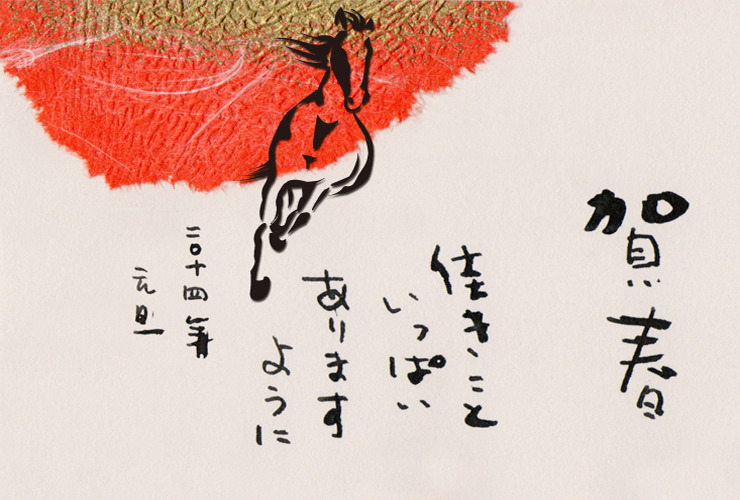 賀春
佳きこと
いっぱい
あります
ように
二〇十四年
元旦